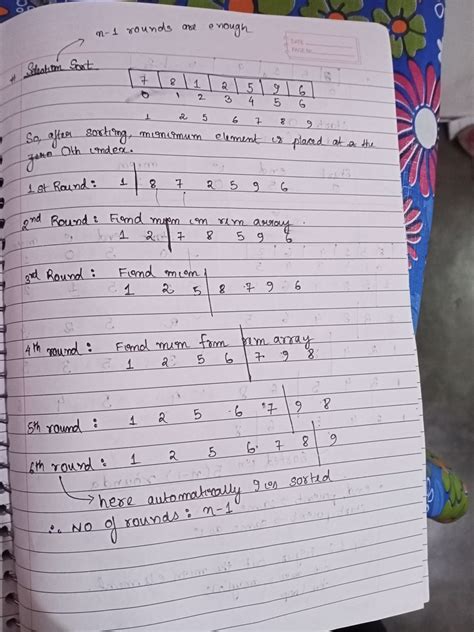 n-1 rounds are enough
DATE
PAGE NO.
* Selection Sort
7 8 1 2 5 9 6
0 1 2 3 4 5 6
1 2 5 6 7 8 9
So, after sorting, minimum element is placed at a the
zero 0th index.
1st Round: 1 | 8 7 2 5 9 6
2nd Round: Find mum in rem array.
1 2 | 7 8 5 9 6
3rd Round: Find mum
1 2 5 | 8 7 9 6
4th round: Find mum from rem array
1 2 5 6 | 7 9 8
5th round: 1 2 5 6 7 | 9 8
6th round: 1 2 5 6 7 8 | 9
here automatically 9 is sorted
∴ NO of rounds: n-1